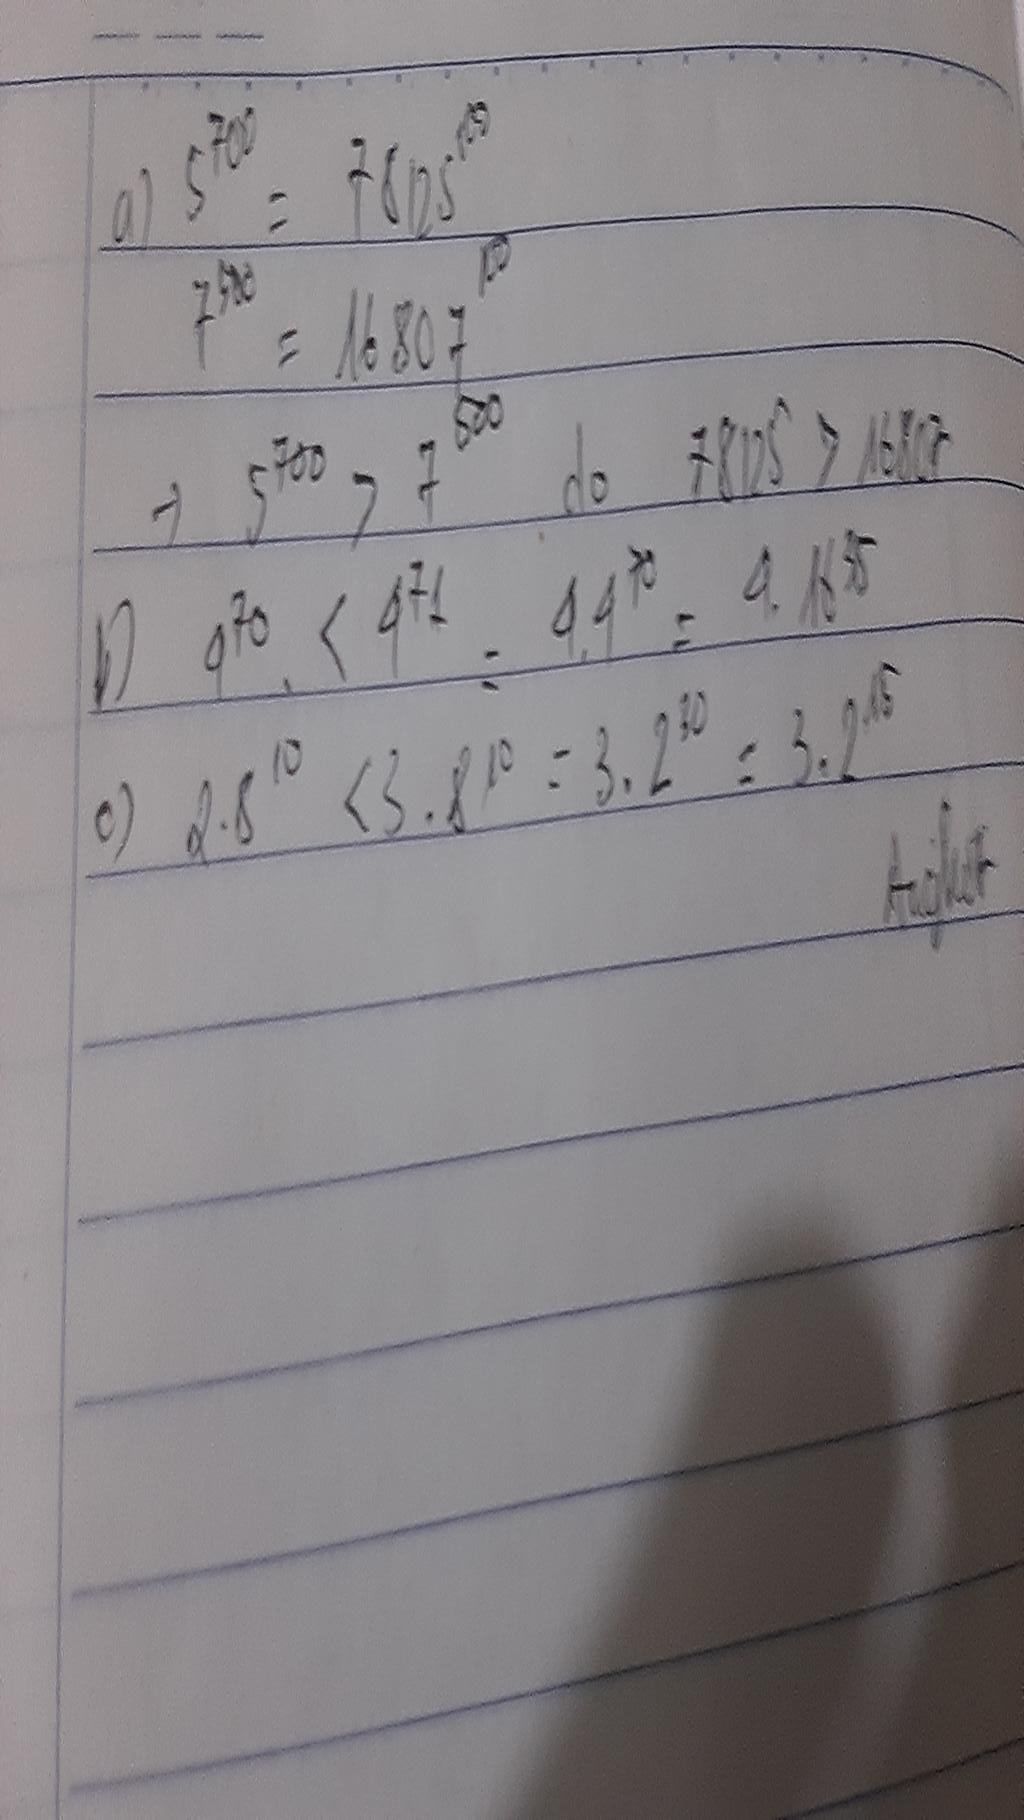 a) 5^700 = 78125^100
7^500 = 16807^100
→ 5^700 > 7^500 do 78125 > 16807
b) 4^70 < 4^71 = 4.4^70 = 4.16^35
c) 2.8^10 < 3.8^10 = 3.2^30 = 3.2^15